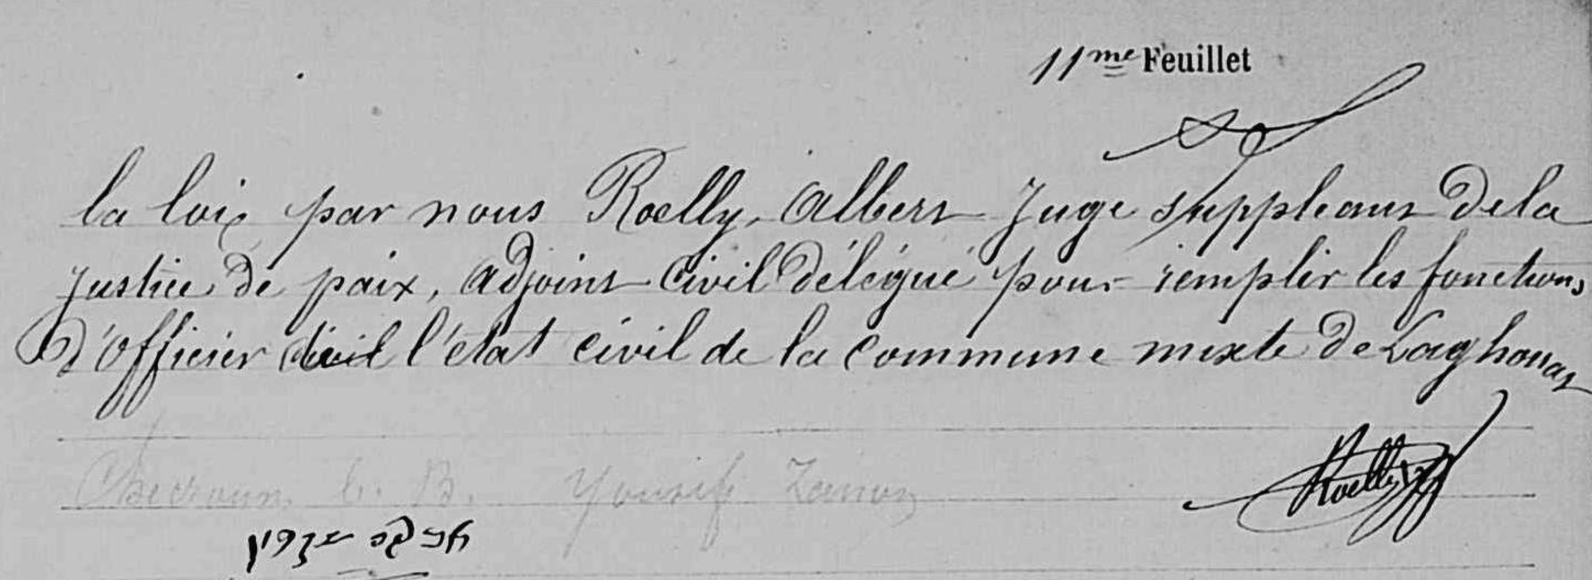 11me Feuillet
la loi, par nous Roelly, Albert Juge suppléant de la
justice de paix, adjoint civil délégué pour remplir les fonctions
d'officier civil l'état civil de la commune mixte de Laghouat
b. B. Yousif
Roelly